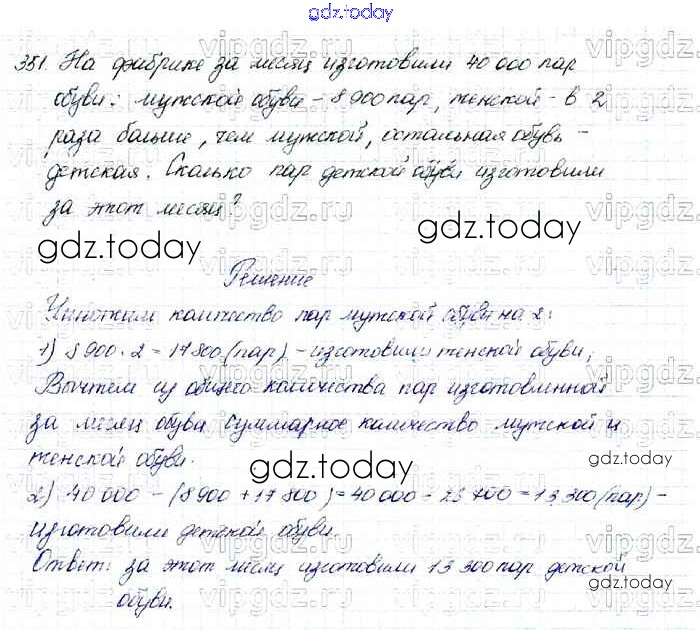 gdz.today
351. На фабрике за месяц изготовили 40 000 пар
обуви: мужской обуви – 8 900 пар, женской – в 2
раза больше, чем мужской, остальная обувь –
детская. Сколько пар детской обуви изготовили
за этот месяц?
gdz.today
gdz.today
Решение
Умножим количество пар мужской обуви на 2:
1) 8 900 · 2 = 17 800 (пар) – изготовили женской обуви;
Вычтем из общего количества пар изготовленной
за месяц обуви суммарное количество мужской и
женской обуви.
gdz.today
gdz.today
2) 40 000 – (8 900 + 17 800) = 40 000 – 26 700 = 13 300 (пар) –
изготовили детской обуви.
gdz.today
Ответ: за этот месяц изготовили 13 300 пар детской
обуви.
vipgdz.ru